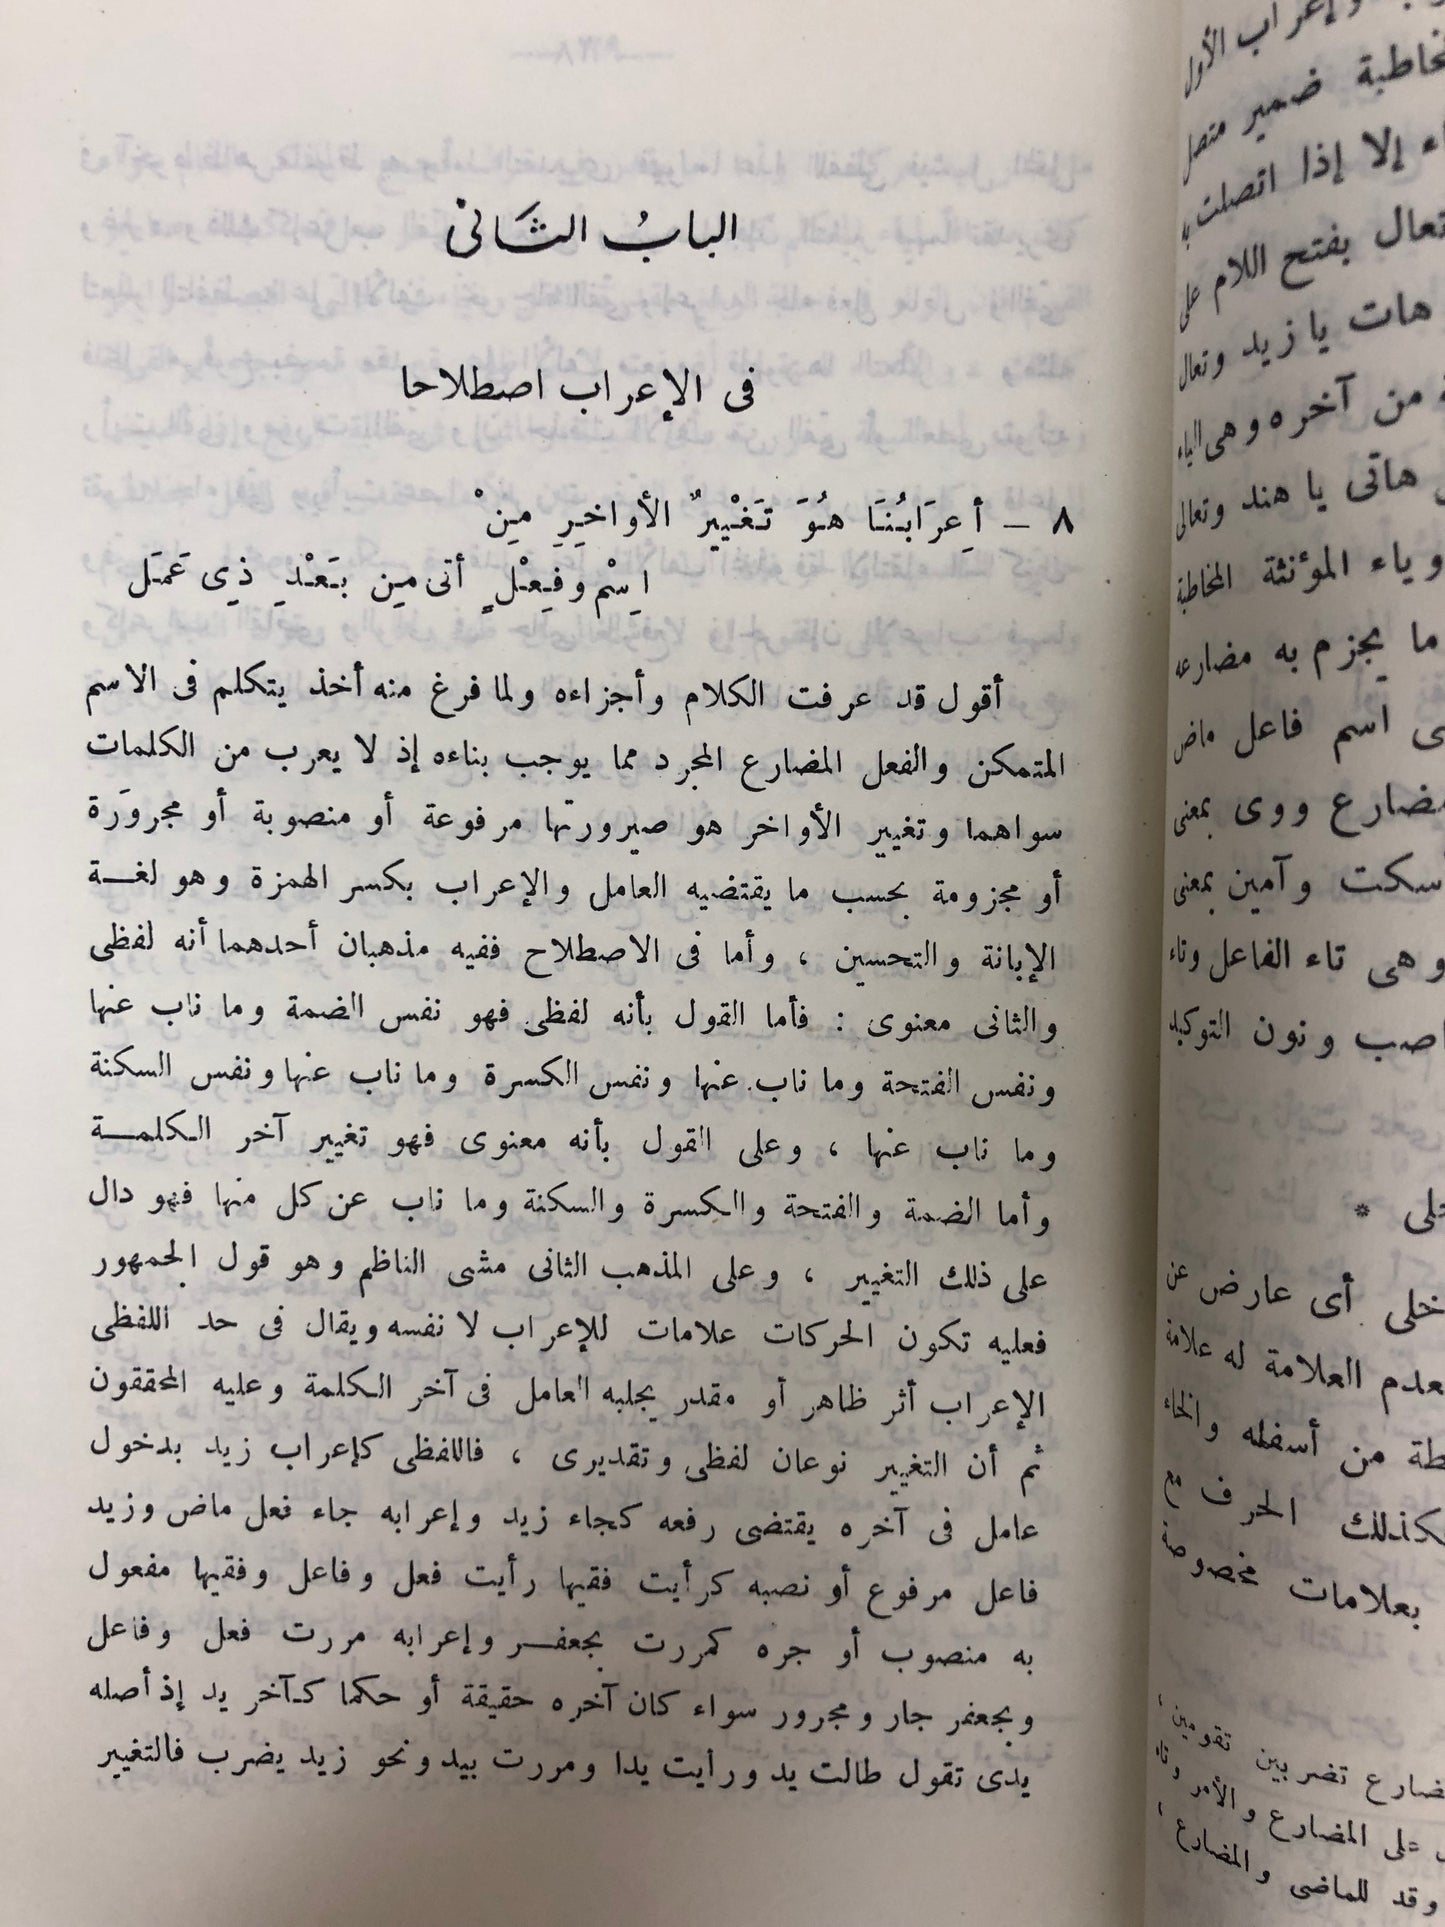 الباب الثَانى
فى الإعراب اصطلاحا
٨ – أ ِعرَابُنَا هُوَ تَغْيِيرٌ الأواخِرِ مِنْ
اِسْم وفِعْلٍ أتى مِن بَعْدِ ذِى عَمَل
أقول قد عرفت الكلام وأجزاءه ولما فرغ منه أخذ يتكلم فى الاسم
المتمكن والفعل المضارع المجرد مما يوجب بناءه إذ لا يعرب من الكلمات
سواهما وتغيير الأواخر هو صيرورتها مرفوعة أو منصوبة أو مجرورة
أو مجزومة بحسب ما يقتضيه العامل والإعراب بكسر الهمزة وهو لغــة
الإبانة والتحسين ، وأما فى الاصطلاح ففيه مذهبان أحدهما أنه لفظى
والثانى معنوى : فأما القول بأنه لفظى فهو نفس الضمة وما ناب عنها
ونفس الفتحة وما ناب عنها ونفس الكسرة وما ناب عنها ونفس السكنة
وما ناب عنها ، وعلى القول بأنه معنوى فهو تغيير آخر الكلمــة
وأما الضمة والفتحة والكسرة والسكنة وما ناب عن كل منها فهو دال
على ذلك التغيير ، وعلى المذهب الثانى مشى الناظم وهو قول الجمهور
فعليه تكون الحركات علامات للإعراب لا نفسه ويقال فى حد اللفظى
الإعراب أثر ظاهر أو مقدر يجلبه العامل فى آخر الكلمة وعليه المحققون
ثم أن التغيير نوعان لفظى وتقديرى ، فاللفظى كإعراب زيد بدخول
عامل فى آخره يقتضى رفعه كجاء زيد وإعرابه جاء فعل ماض وزيد
فاعل مرفوع أو نصبه كرأيت فقيها رأيت فعل وفاعل وفقيها مفعول
به منصوب أو جره كمررت بجعفــر وإعرابه مررت فعل وفاعل
وبجعفر جار ومجرور سواء كان آخره حقيقة أو حكما كـآخر يد إذ أصله
يدى تقول طالت يد ورأيت يدا ومررت بيد ونحو زيد يضرب فالتغيير
إعراب الأول
ضمير متصل
إلا إذا اتصلت
تعال بفتح اللام على
هات يا زيد وتعال
من آخره وهى الياء
هاتى يا هند وتعالى
وياء المؤنثة المخاطبة
ما يجزم به مضارعه
اسم فاعل ماض
ووى بمعنى
وآمين بمعنى
وهى تاء الفاعل وتاء
ونون التوكيد
*
أى عارض عن
العلامة له علامة
من أسفله والخاء
الحرف مع
بعلامات مخصوصة
تضربين تقومين ،
على المضارع والأمر وتاء
وقد للماضى والمضارع ،